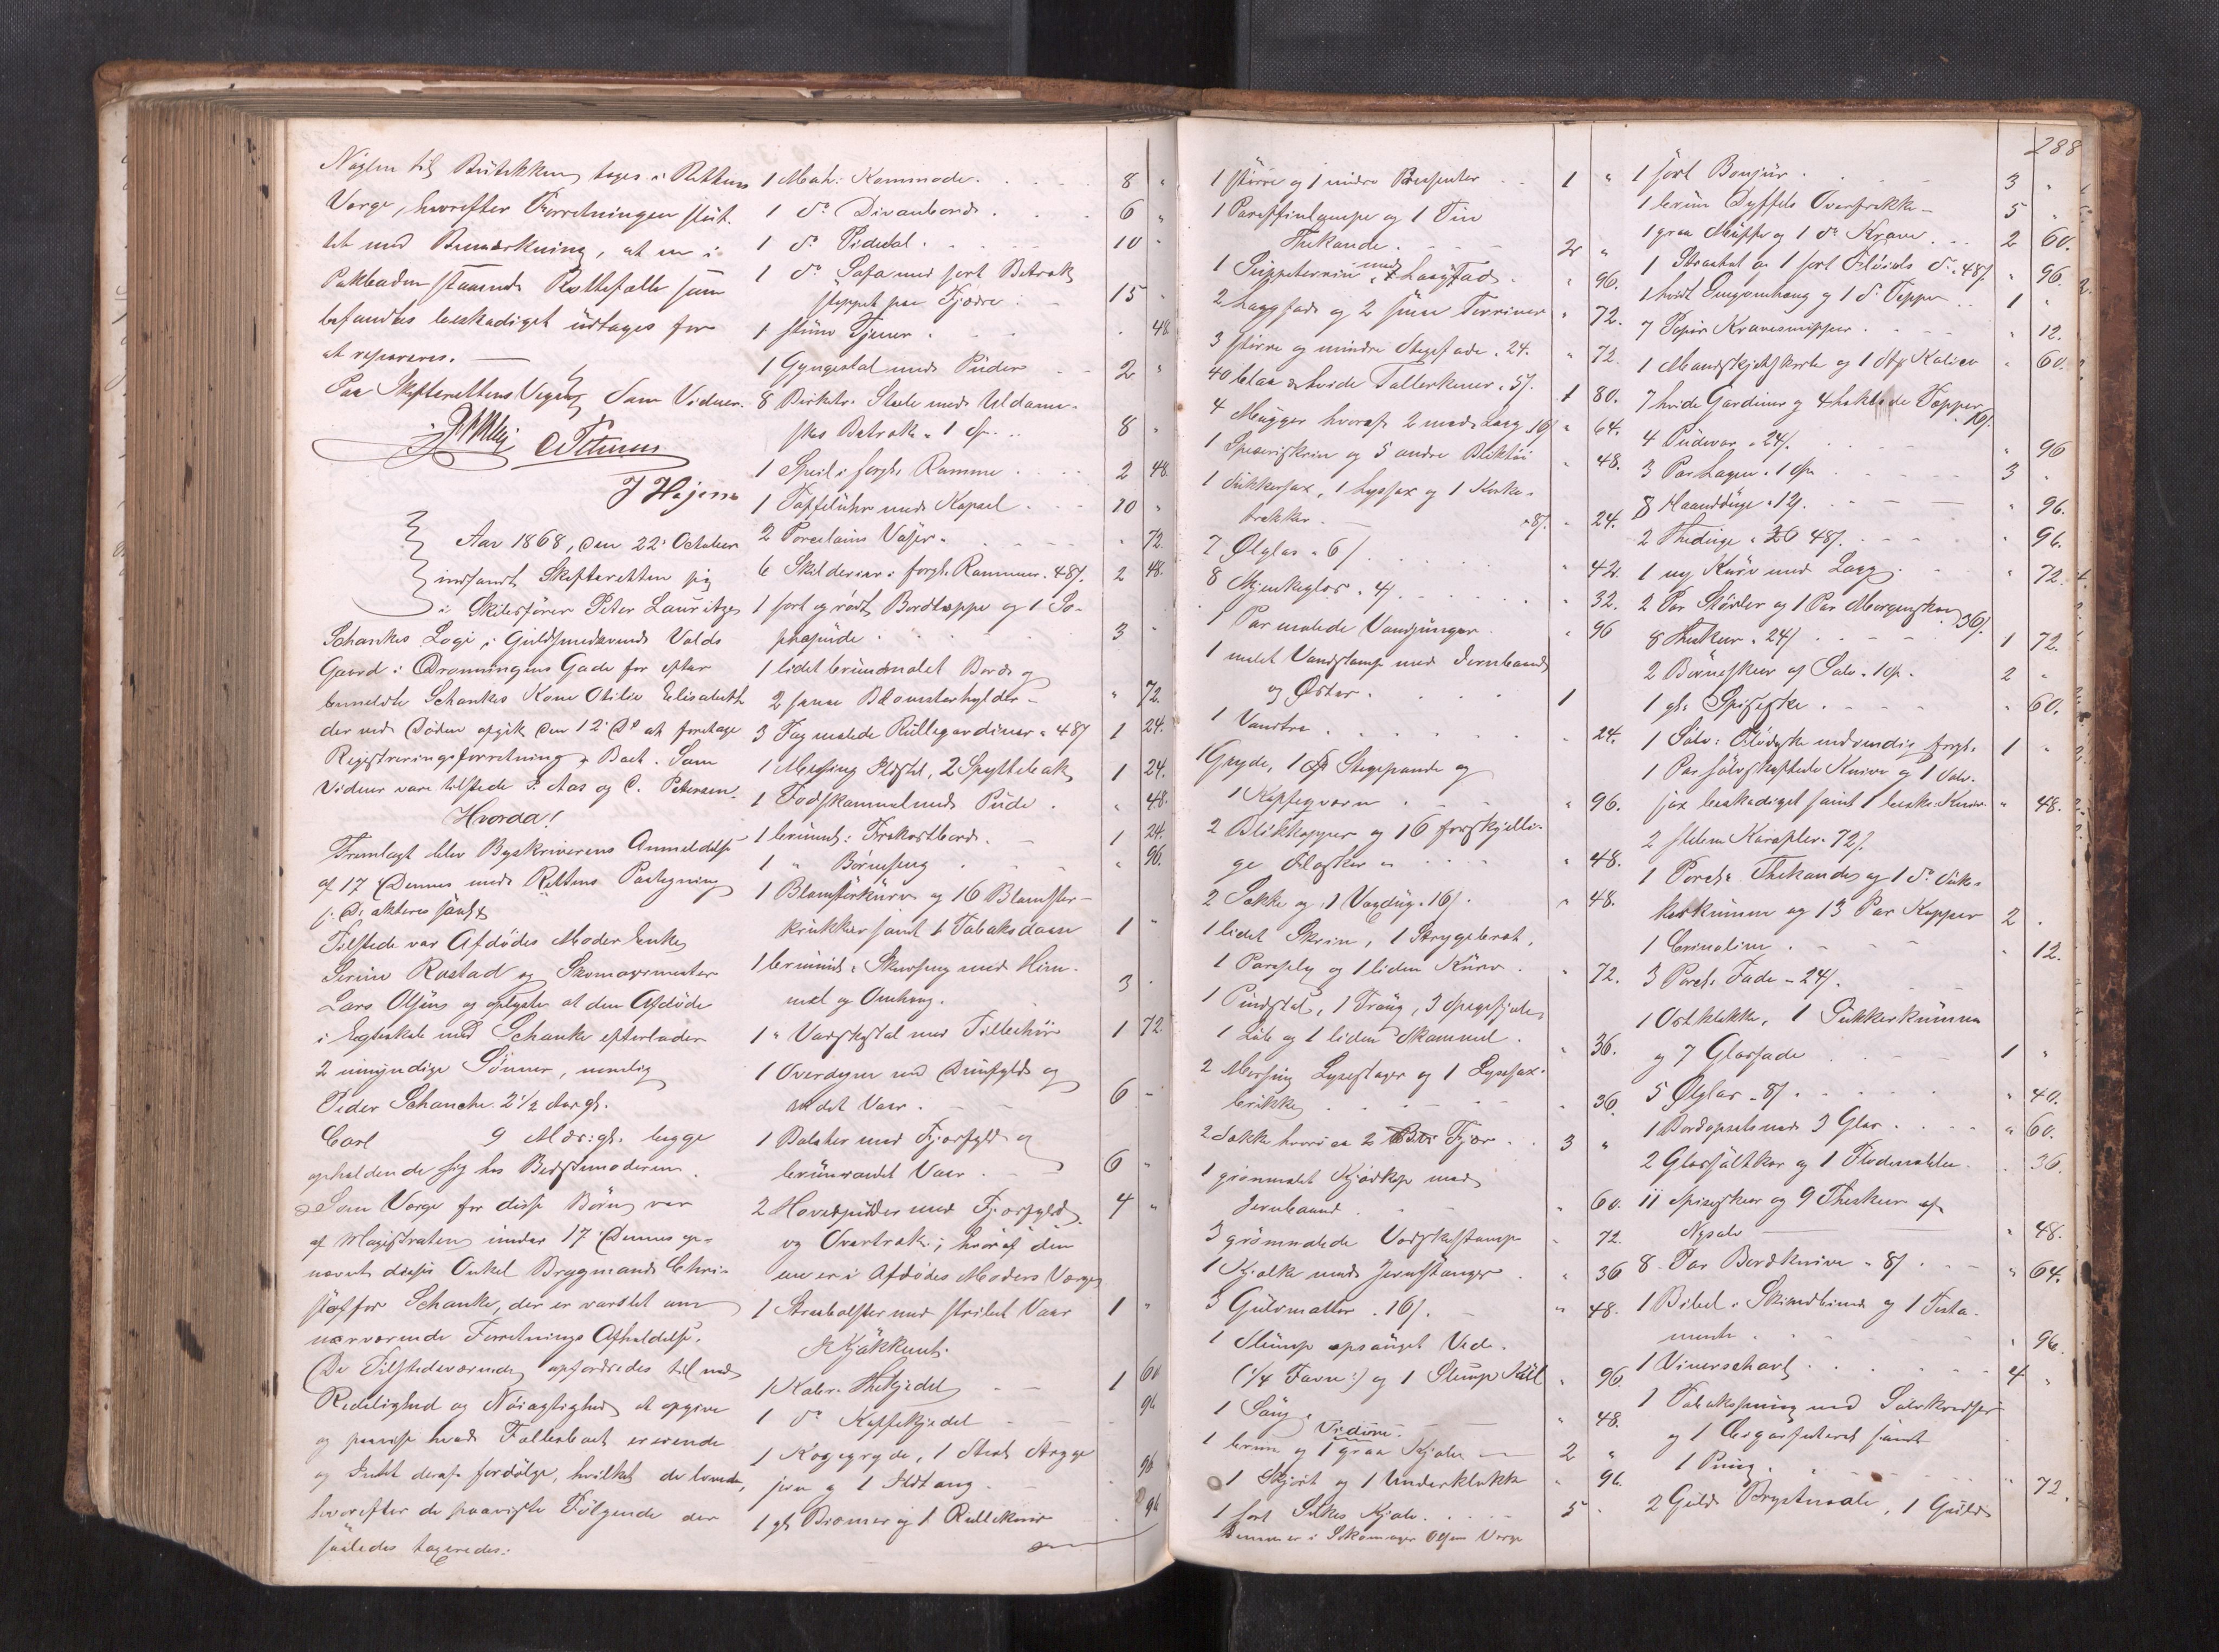 Nøglen til Butikken tages i Rettens
Værge, hvorefter Forretningen slut-
tet med Bemærkning, at en i
Pakboden staaende Rottefælle som
befandtes beskadiget udtages for
at repareres.
Paa Skifterettens Vegne Som Vidner.
C Petersen
Aar 1868, den 22de October
indfandt Skifteretten sig
i Skibsfører Peter Lauritz
Schankes Logi i Guldsmedsvend Volds
Gaard i Dronningens Gade for efter
bemeldte Schankes Kone Otilie Elisabeth
der ved Døden afgik den 12te Ds at foretage
Registreringsforretning i Boet. Som
Vidner vare tilstede P. Aas og C. Petersen.
Hvorda!
Fremlagt blev Byskriverens Anmeldelse
af 17 Dennes med Rettens Paategning
Tilstede var Afdødes Moder Enke
Serine Rostad og Skomagermester
Lars Olsen og oplyste at den Afdøde
i Egteskab med Schanke efterlader
2 umyndige Sønner, nemlig
Peder Schanche 2 1/2 Aar gl.
Carl 9 Mdr: gl. begge
opholdende sig hos Bedstemoderen.
Som Værge for disse Børn var
af Magistraten under 17 Dennes op-
nævnt disses Onkel Brygmand Chri-
stoffer Schanke, der er varslet om
nærværende Forretnings Afholdelse.
De Tilstedeværende opfordredes til med
Redelighed og Nøiagtighed at opgive
og paavise hvad Fællesboet er eiende
og Intet deraf fordølge, hvilket de lovede,
hvorefter de paaviste Følgende der
saaledes taxeredes:
1 Mah: Kommode 8 "
1 do Divanbord 6 "
1 do Pidestal 10 "
1 do Sofa med sort Betræk
stoppet paa Fjedre 15 "
1 stum Tjener " 48
1 Gyngestol med Puder 2 "
8 Birketr. Stole med Uldam-
skes Betræk a 1 Sp. 8 "
1 Speil i forgl. Ramme 2 48
1 Taffeluhr med Kapsel 10 "
2 Porcelains Vaser " 72
6 Skilderier i forgl. Rammer a 48 s. 2 48.
1 sort og rødt Bordteppe og 1 So-
phapude 3 "
1 lidet brunmalet Bord og
2 smaa Blomsterhylder " 72
3 Fag malede Rullegardiner a 48 s 1 24.
1 Messing Ildstel, 2 Spyttebak 1 24.
1 Fodskammel med Pude " 48.
1 brunm: Frokostbord 1 24.
1 " Børneseng " 96.
1 Blomsterkurv og 16 Blomster-
krukker samt 1 Tobaksdaase 1 "
1 brunm. Skurseng med Him-
mel og Omhæng. 3 "
1 " Vaskestol med Tilbehør 1 72
1 Overdyne med Duunfyld og
stribet Vaar 6 "
1 Bolster med Fjærfyld og
brunrandet Vaar 6 "
2 Hovedpuder med Fjærfyld 4 "
og Overtræk; hvoraf den
ene er i Afdødes Moders Værge
1 Straabolster med stribet Vaar 1 "
I Kjøkkenet:
1 Kober Thekjedel 1 60
1 do Kaffekjedel " 96
1 Kogegryde, 1 Steds Stryge
jern og 1 Ildtang " 96
1 gl. Bismer og 1 Rullekniv " 96
288
1 større og 1 mindre Præsenter 1 "
1 Paraffinlampe og 1 Tin
Thekande 2 "
1 Suppeterrin med Laag Fad " 96.
2 Laagfade og 2 smaa Terriner " 72.
3 større og mindre Stegefade a 24. " 72.
40 blaa & hvide Tallerkener a 5 s. 1 80.
4 Mugger hvoraf 2 med Laag a 16 s " 64.
1 Specieriskrin og 5 andre Bliktøi " 48.
1 Sukkersax, 1 Lyssax og 1 Korke-
trækker a 8 s. " 24.
7 Ølglas a 6 s " 42.
8 Mjenkeglas a 4 s " 32.
1 Par malede Vandspunger " 96
1 malet Vandstamp med Jernbaand
og Øster 1
1 Vandtræ " 24.
1 Gryde, 1 Stegepande og
1 Kaffeqværn " 96.
2 Blikkopper og 16 forskjelli-
ge Flasker " 48.
2 Sække og 1 Voxdug a 16 s. " 48.
1 lidet Skrin, 1 Strygebræt,
1 Paraply og 1 liden Kurv " 72.
1 Pindstol, 1 Traug, 3 Spegefjele,
1 Løb og 1 liden Skammel " 36.
2 Messing Lysestager og 1 Lysesax-
brikke " 36
2 Sække hvori ca 2 Fjær 3 "
1 grønmalet Kjødkop med
Jernbaand " 60.
3 grønmalede Vadskestampe " 72.
1 Kjælke med Jernstænger " 36
3 Gulvmatter a 16 s. " 48.
1 Slump opsauget Ved
(1/4 Favn:) og 1 Slump Kul " 96
1 Saug " 48.
Videre.
1 brun og 1 graa Kjole 2 "
1 Skjørt og 1 Underklokke " 96.
1 sort Silkes Kjole 5 "
Denne er i Skomager Olsens Værge
1 sort Bonjur 3 "
1 brun Dyffels Overfrakke 5 "
1 graa Muffe og 1 do Krave 2 60.
1 Straahat og 1 sort Fløiels do a 48 s. " 96.
1 hvidt Sengomhæng og 1 do Teppe 1 "
7 Papir Kravesnipper " 12.
1 Mandskjolskjorte og 1 Stk Kalico " 60.
7 hvide Gardiner og 4 heklede Tæpper
4 Pudevar a 24 s. " 96
3 Par Lagen a 1 Sp. 3 "
8 Haandduge a 12 s. " 96.
2 Theduge a 48 s. " 96.
1 ny Kurv med Laag " 72.
2 Par Støvler og 1 Par Morgensko a 36 s.
8 Theskeer a 24 s 1 72.
2 Børneskeer af Sølv a 1 Sp. 2 "
1 gl. Spiseske " 60.
1 Sølv: Flødeske indvendig forgl. 1 "
1 Par sølvskaftede Knive og 1 Sølv-
sax beskadiget samt 1 besk: Kniv " 48.
2 slebne Karafler a 72 s.
1 Porcl. Thekande og 1 do Suk-
kerkumme og 13 Par Kopper 2 "
1 Crinoline " 12.
3 Porcl. Fade a 24 s.
1 Ostklokke, 1 Sukkerkumme
og 7 Glasfade 1 "
5 Ølglas a 8 s " 40.
1 Bordopsats med 3 Glas " 60.
2 Glassaltkar og 1 Flødemokke " 36.
11 Spiseskeer og 9 Theskeer af
Nysølv " 48.
8 Par Bordknive a 8 s " 64.
1 Bibel i Skindbind og 1 Testa-
mente " 96.
1 Vinerschavl 4 "
1 Tobakspung med Sølvkvadse
og 1 Cigarfuteral samt
1 Pung " 72.
2 Guld Brystnaale, 1 Guld